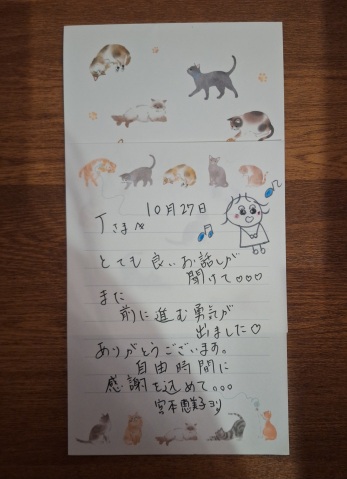 10月27日
Tさまへ
とても良いお話しが
聞けて♡♡♡
また
前に進む勇気が
出ました♡
ありがとうございます。
自由時間に
感謝を込めて。。。
宮本恵美子ヨリ